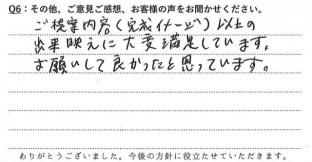 Q6：その他、ご意見ご感想、お客様の声をお聞かせください。
ご提案内容(完成イメージ)以上の
出来映えに大変満足しています。
お願いして良かったと思っています。
ありがとうございました。今後の方針に役立たせていただきます。